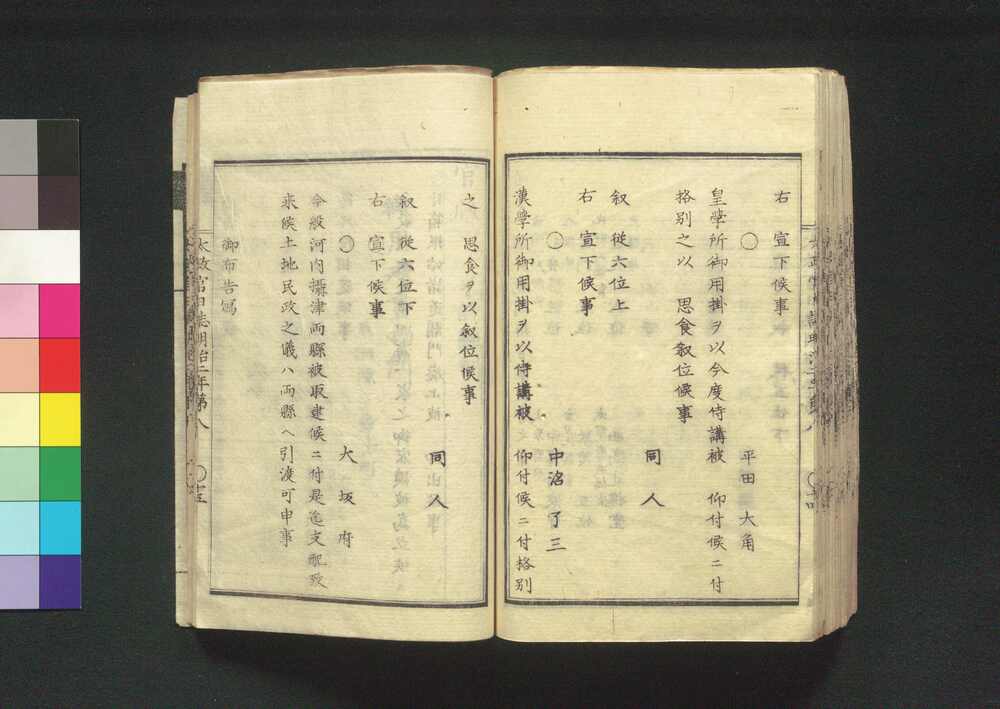 右　宣下候事
○　平田大角
皇學所御用掛ヲ以今度侍講被　仰付候ニ付
格別之以　思食叙位候事
同人
叙　從六位上
右　宣下候事
○　中沼了三
漢學所御用掛ヲ以侍講被　仰付候ニ付格別
之　思食ヲ以叙位候事
同人
叙　從六位下
右　宣下候事
○　大坂府
今般河内攝津兩縣被取建候ニ付是迄支配致
来候土地民政之儀ハ兩縣ヘ引渡可申事
御布告寫
太政官日誌明治二年第八
○十五